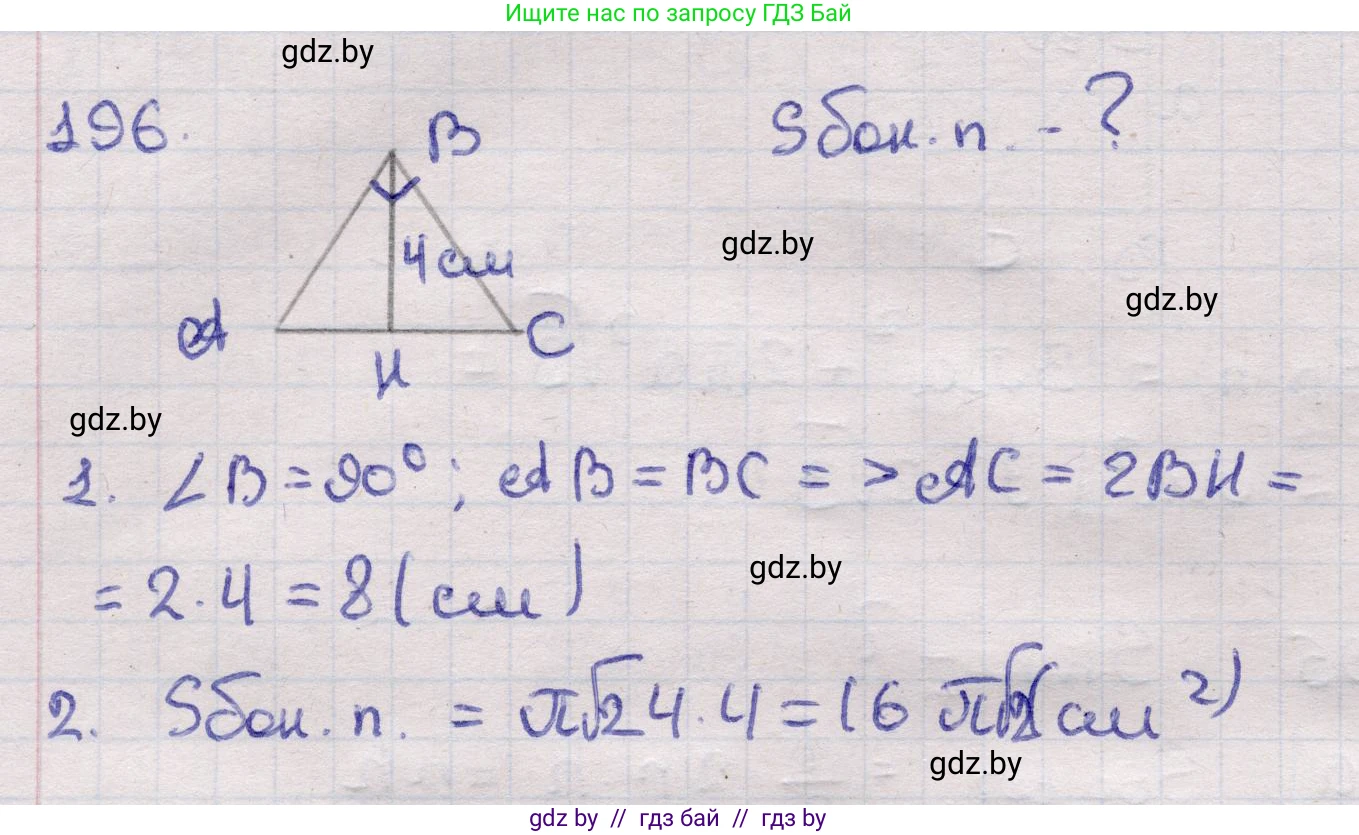 Ищите нас по запросу ГДЗ Бай
gdz.by
196.
B
Sбок. п. - ?
gdz.by
4 см
gdz.by
A
C
H
gdz.by
1. ∠B = 90°; AB = BC => AC = 2BH =
gdz.by
= 2 · 4 = 8 (см)
2. Sбок. п. = π√2 4 · 4 = 16 π√2 (см²)
gdz.by
gdz by // гдз бай // гдз by